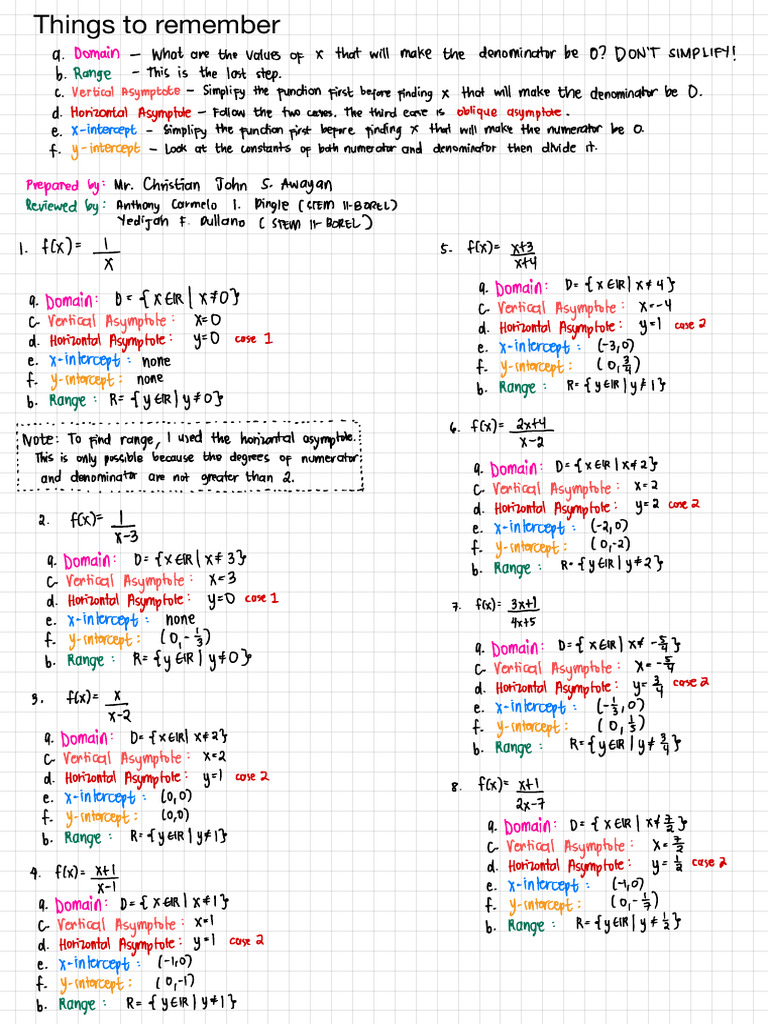 Things to remember
a. Domain – What are the values of x that will make the denominator be 0? DON'T SIMPLIFY!
b. Range – This is the last step.
c. Vertical Asymptote – Simplify the function first before finding x that will make the denominator be 0.
d. Horizontal Asymptote – Follow the two cases. The third case is oblique asymptote.
e. x-intercept – Simplify the function first before finding x that will make the numerator be 0.
f. y-intercept – Look at the constants of both numerator and denominator then divide it.
Prepared by: Mr. Christian John S. Awayan
Reviewed by: Anthony Carmelo I. Dingle (STEM 11-BOREL)
Yedijah F. Dullano (STEM 11-BOREL)
1. f(x) = 1/x
a. Domain: D = {x∈ℝ | x≠0}
c. Vertical Asymptote: x=0
d. Horizontal Asymptote: y=0 case 1
e. x-intercept: none
f. y-intercept: none
b. Range: R = {y∈ℝ | y≠0}
Note: To find range, I used the horizontal asymptote.
This is only possible because the degrees of numerator
and denominator are not greater than 2.
2. f(x) = 1/(x-3)
a. Domain: D = {x∈ℝ | x≠3}
c. Vertical Asymptote: x=3
d. Horizontal Asymptote: y=0 case 1
e. x-intercept: none
f. y-intercept: (0, -1/3)
b. Range: R = {y∈ℝ | y≠0}
3. f(x) = x/(x-2)
a. Domain: D = {x∈ℝ | x≠2}
c. Vertical Asymptote: x=2
d. Horizontal Asymptote: y=1 case 2
e. x-intercept: (0,0)
f. y-intercept: (0,0)
b. Range: R = {y∈ℝ | y≠1}
4. f(x) = (x+1)/(x-1)
a. Domain: D = {x∈ℝ | x≠1}
c. Vertical Asymptote: x=1
d. Horizontal Asymptote: y=1 case 2
e. x-intercept: (-1,0)
f. y-intercept: (0,-1)
b. Range: R = {y∈ℝ | y≠1}
5. f(x) = (x+3)/(x+4)
a. Domain: D = {x∈ℝ | x≠4}
c. Vertical Asymptote: x=-4
d. Horizontal Asymptote: y=1 case 2
e. x-intercept: (-3,0)
f. y-intercept: (0, 3/4)
b. Range: R = {y∈ℝ | y≠1}
6. f(x) = (2x+4)/(x-2)
a. Domain: D = {x∈ℝ | x≠2}
c. Vertical Asymptote: x=2
d. Horizontal Asymptote: y=2 case 2
e. x-intercept: (-2,0)
f. y-intercept: (0,-2)
b. Range: R = {y∈ℝ | y≠2}
7. f(x) = (3x+1)/(4x+5)
a. Domain: D = {x∈ℝ | x≠ -5/4}
c. Vertical Asymptote: x = -5/4
d. Horizontal Asymptote: y = 3/4 case 2
e. x-intercept: (-1/3, 0)
f. y-intercept: (0, 1/5)
b. Range: R = {y∈ℝ | y≠ 3/4}
8. f(x) = (x+1)/(2x-7)
a. Domain: D = {x∈ℝ | x≠ 7/2}
c. Vertical Asymptote: x = 7/2
d. Horizontal Asymptote: y = 1/2 case 2
e. x-intercept: (-1,0)
f. y-intercept: (0, -1/7)
b. Range: R = {y∈ℝ | y≠ 1/2}